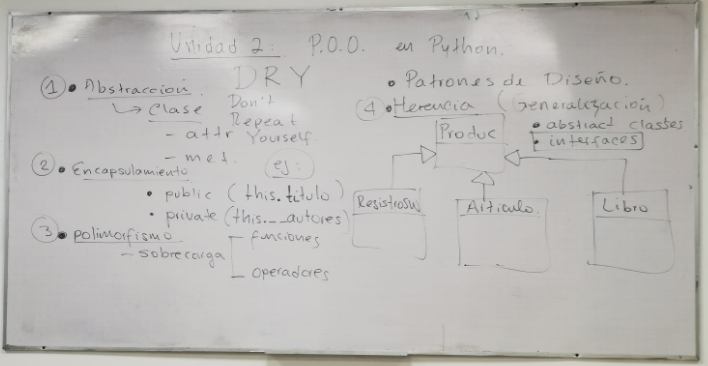 Unidad 2: P.O.O. en Python.
DRY
Don't
Repeat
Yourself
① • Abstracción
↳ Clase
- attr
- met.
② • Encapsulamiento
ej:
• public (this.titulo)
• private (this.__autores)
③ • polimorfismo
- sobrecarga
- funciones
- operadores
• Patrones de Diseño.
④ • Herencia (Generalización)
• abstract classes
• interfaces
Produc
RegistroSW
Artículo
Libro